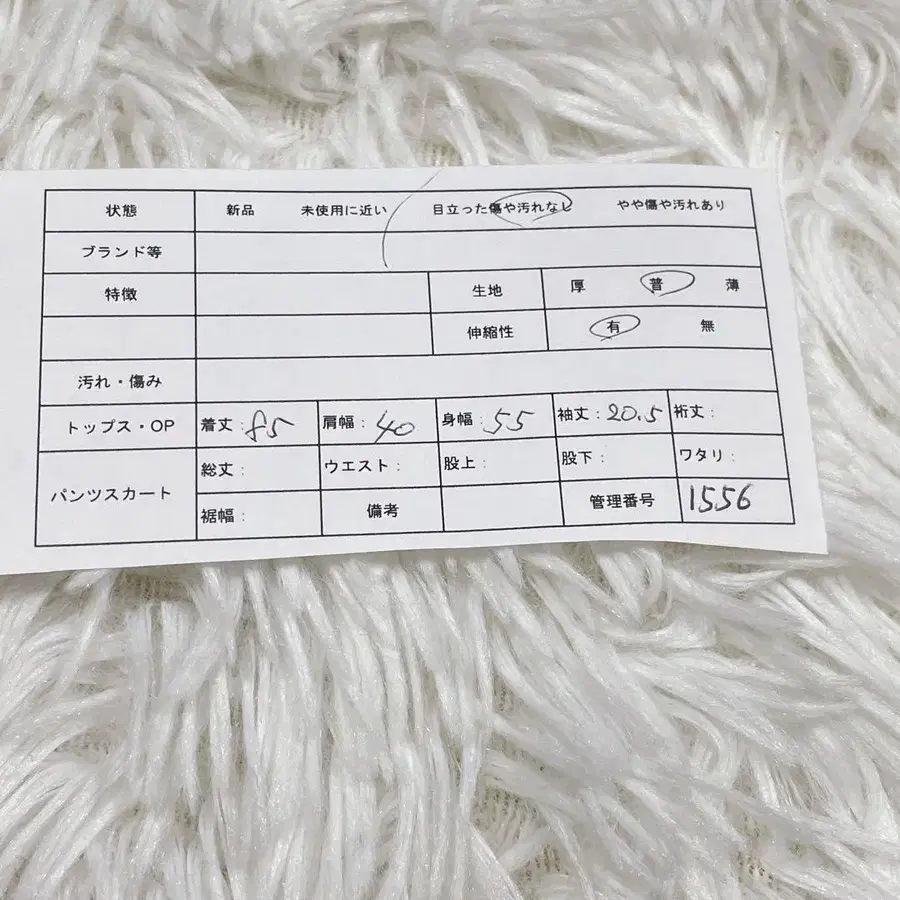 状態 新品 未使用に近い 目立った傷や汚れなし やや傷や汚れあり
ブランド等
特徴 生地 厚 普 薄
伸縮性 有 無
汚れ・傷み
トップス・OP 着丈: 85 肩幅: 40 身幅: 55 袖丈: 20.5 裄丈:
パンツスカート 総丈: ウエスト: 股上: 股下: ワタリ:
裾幅: 備考 管理番号 1556